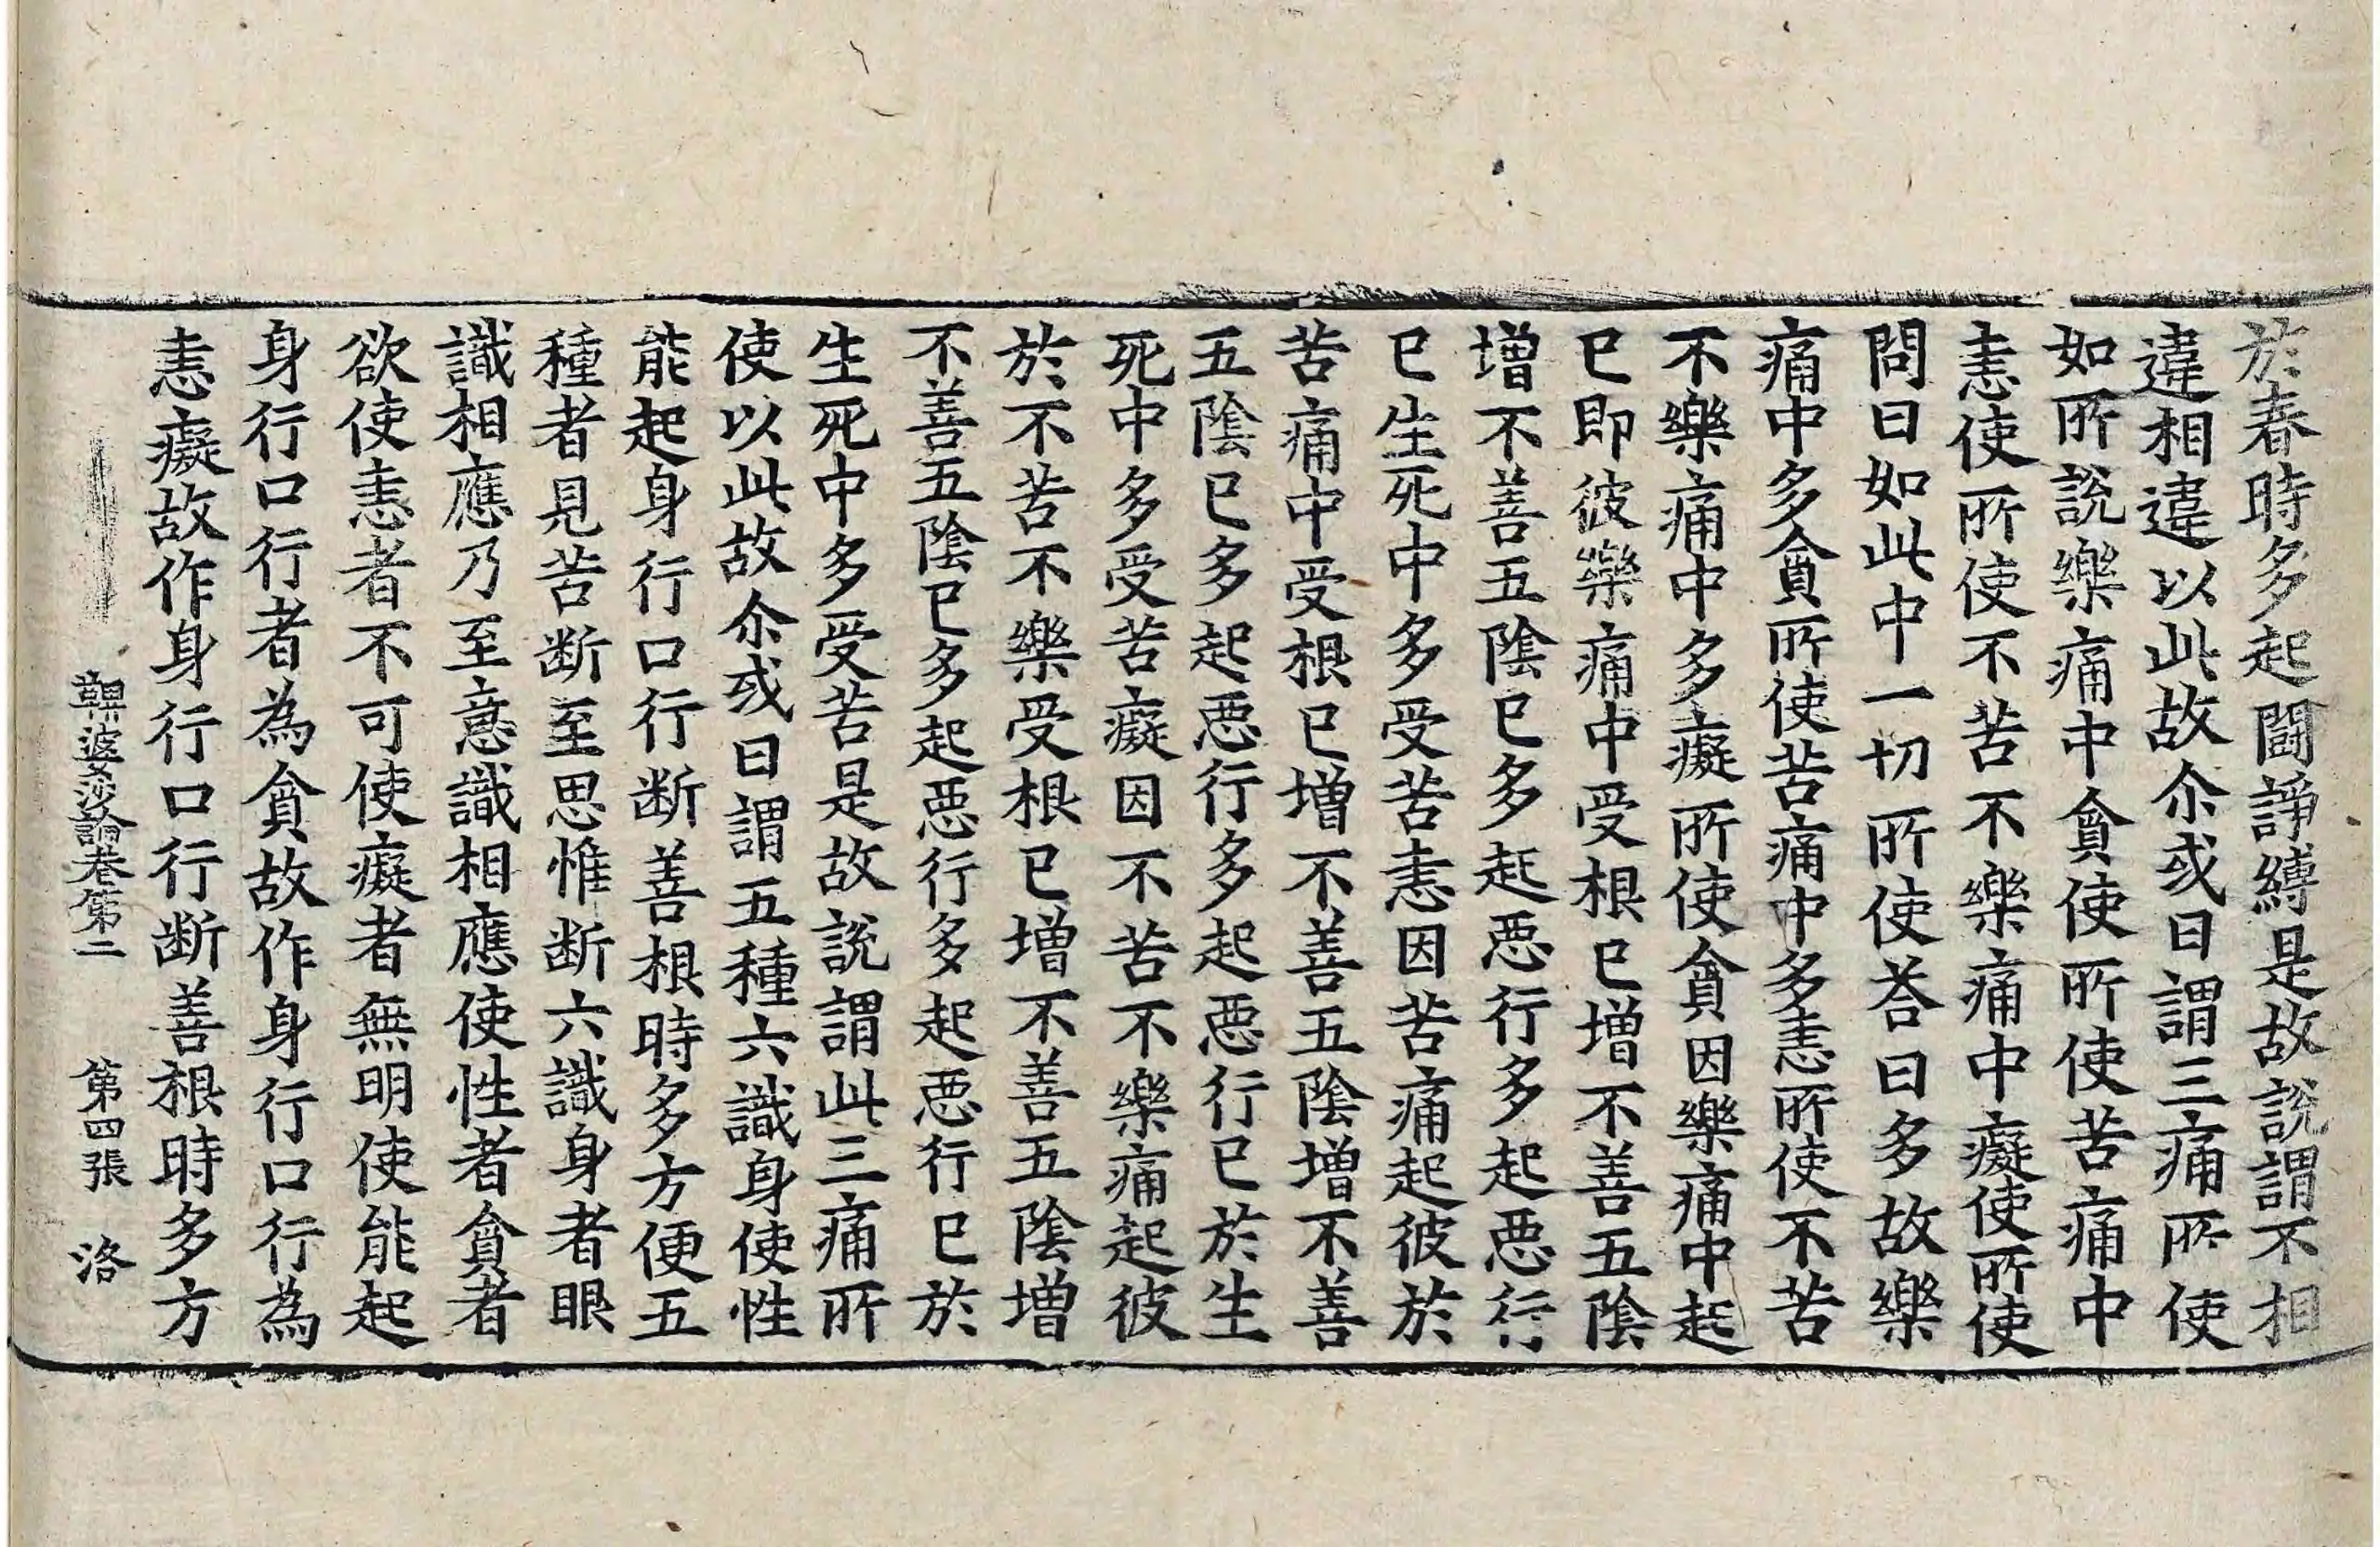 於春時多起闘諍縛是故說謂不相
違相違以此故尒或曰謂三痛所使
如所說樂痛中貪使所使苦痛中
恚使所使不苦不樂痛中癡使所使
問曰如此中一切所使荅曰多故樂
痛中多貪所使苦痛中多恚所使不苦
不樂痛中多癡所使貪因樂痛中起
已即彼樂痛中受根已增不善五陰
增不善五陰已多起惡行多起惡行
已生死中多受苦恚因苦痛起彼於
苦痛中受根已增不善五陰增不善
五陰已多起惡行多起惡行已於生
死中多受苦癡因不苦不樂痛起彼
於不苦不樂受根已增不善五陰增
不善五陰已多起惡行多起惡行已於
生死中多受苦是故說謂此三痛所
使以此故尒或曰謂五種六識身使性
能起身行口行断善根時多方便五
種者見苦断至思惟断六識身者眼
識相應乃至意識相應使性者貪者
欲使恚者不可使癡者無明使能起
身行口行者為貪故作身行口行為
恚癡故作身行口行断善根時多方
鞞婆沙論卷第二 第四張 洛